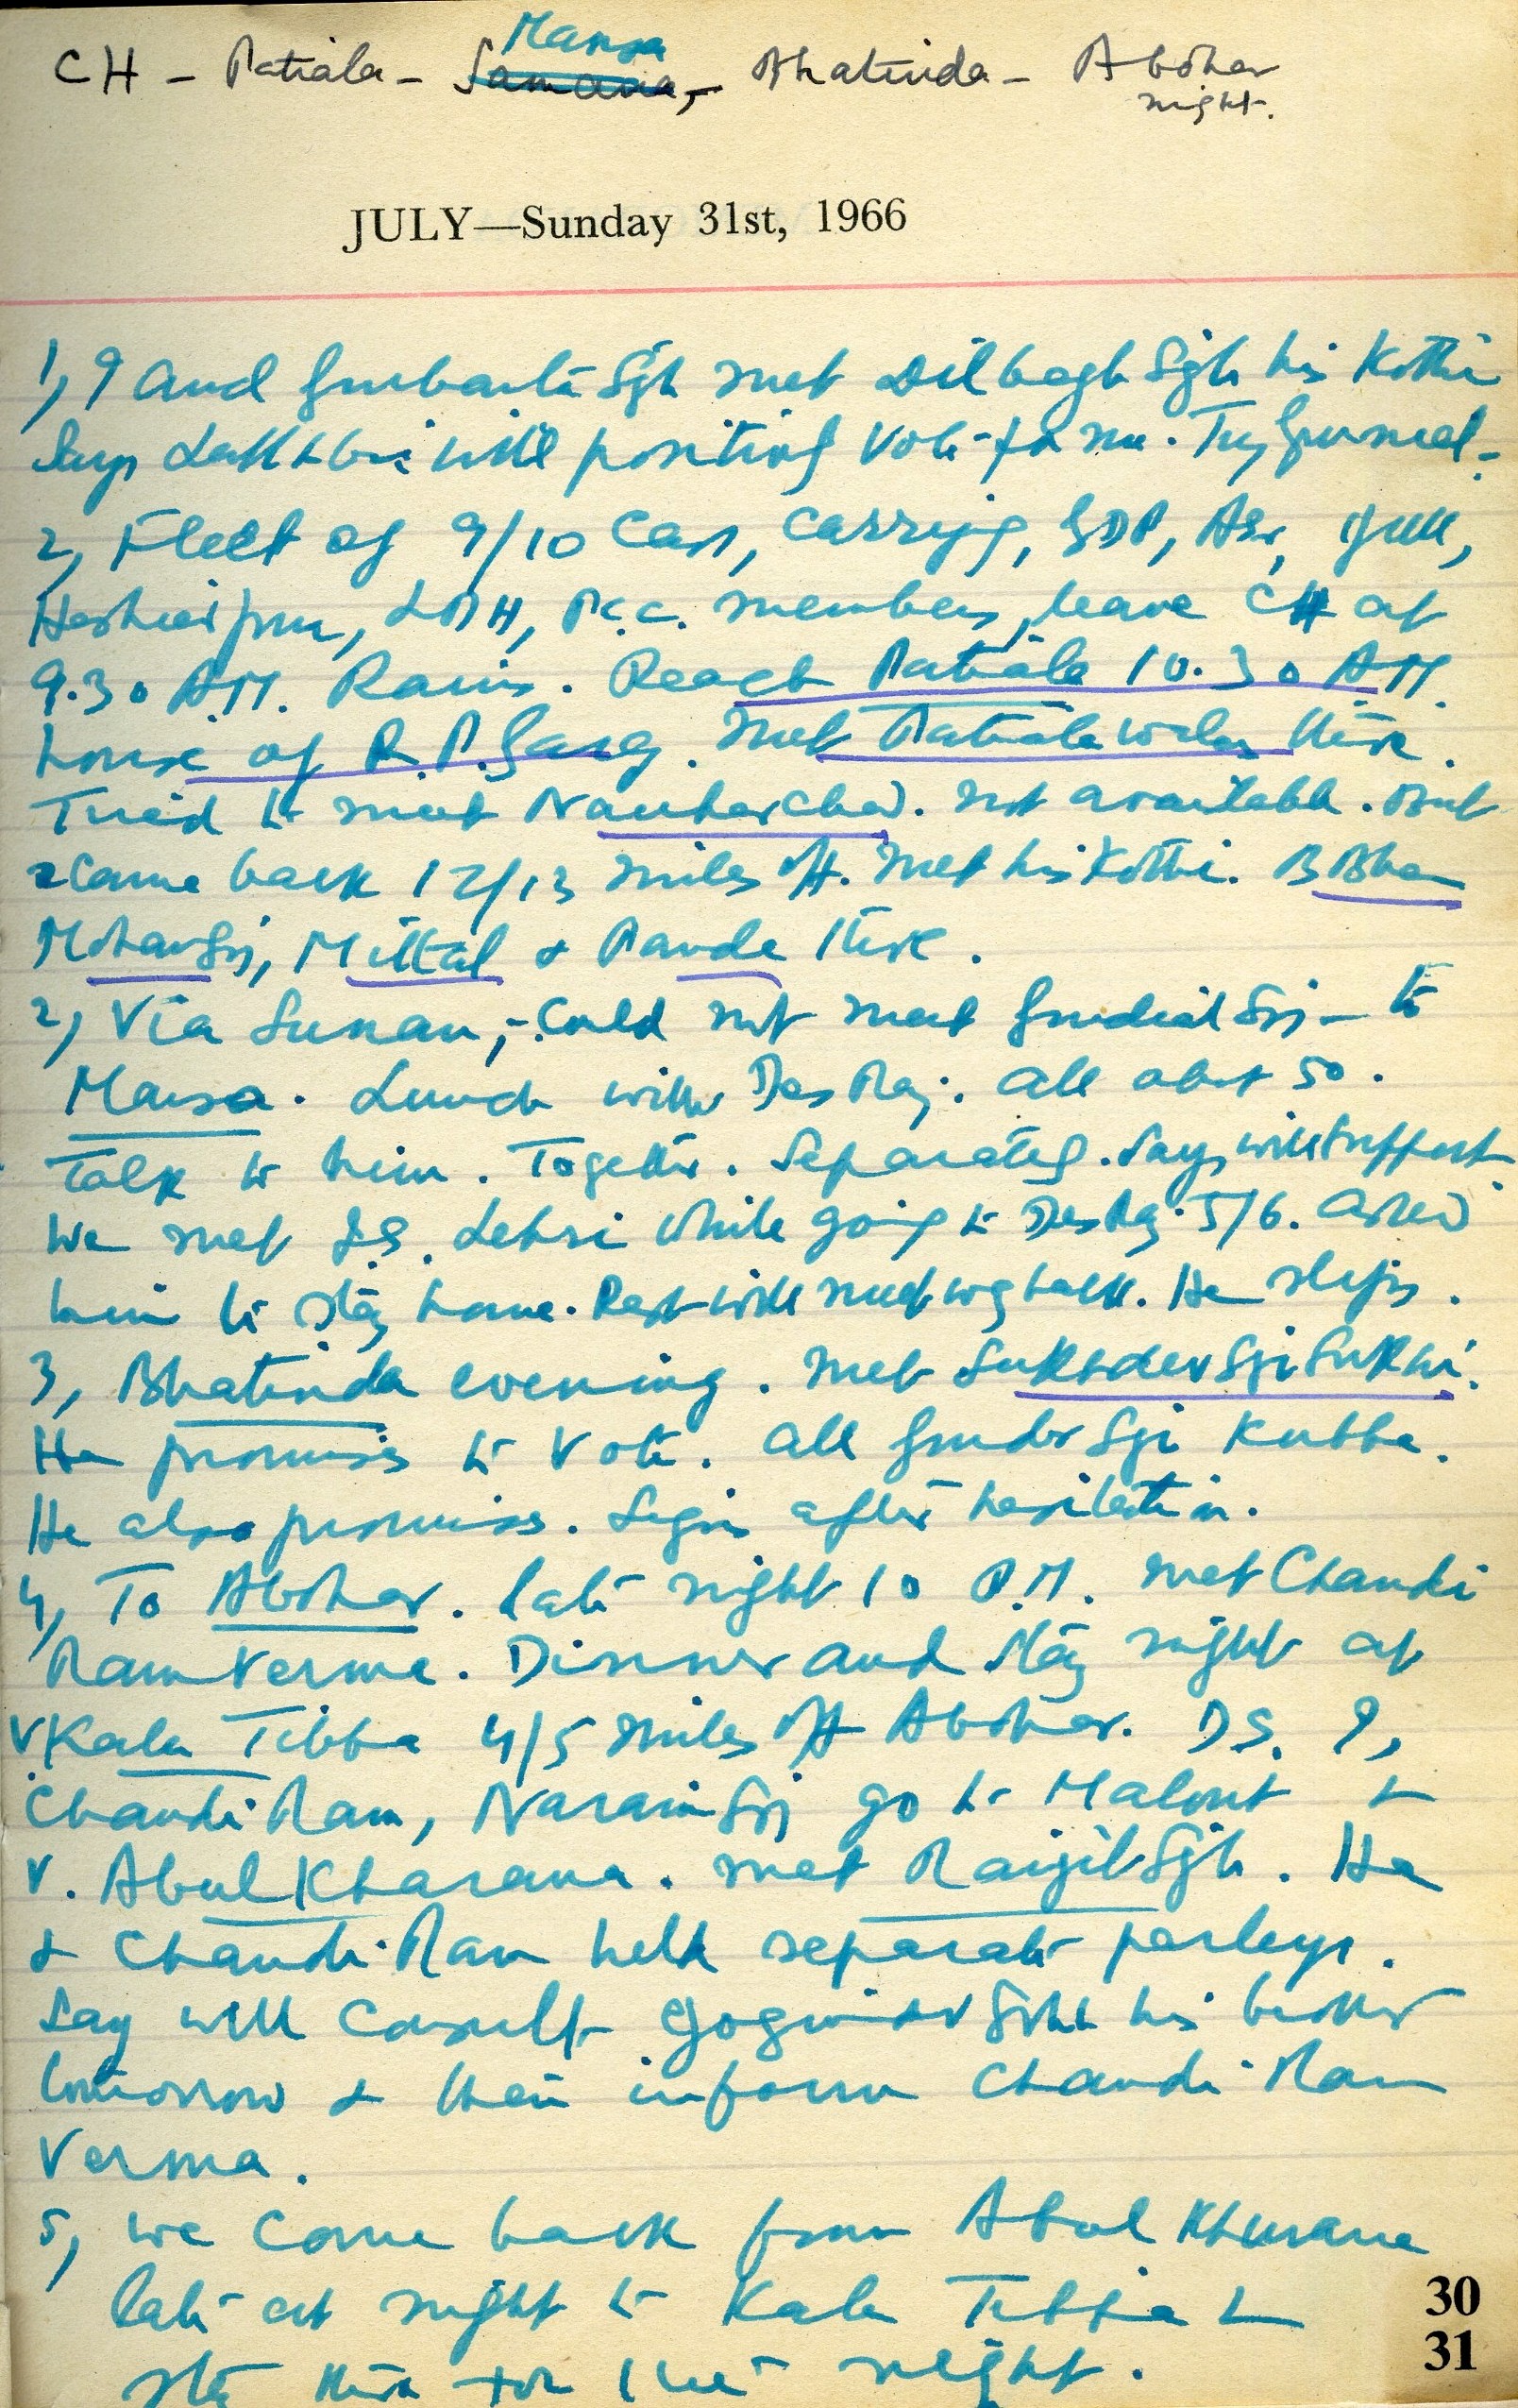 Mansa
CH - Patiala - Samana, - Bhatinda - Abohar
night.
JULY—Sunday 31st, 1966
1, I and Sgh met Dilbagh Sgh his Kothi
Says will vote for me. Try Gurmel.
2, Fleet of 9/10 Cars, Carrying, GDP, Asr, Jull,
Hoshiarpur, LDH, P.C.C. members, leave CH at
9.30 A.M. Rains. Reach Patiala 10.30 A.M.
house of R.P. Garg. Met Patiala walas there.
Tried to meet . not available. But
came back 12/13 miles off. Met his Kothi. B Bhan
Mohan Sgj, Mittal & Pande there.
2, Via Sunam, - Could not meet Gurdial Sgj - to
Mansa. Lunch with Des Raj. All abt 50.
Talk to him. Together. Separately. Says will support
We met Lehri while going to Des Raj 5/6. Asked
him to stay home. Rest will meet wg back. He slips.
3, Bhatinda evening. Met Sukhdev Sgj Sukhi.
He promises to vote. All Sgj Kubba.
He also promises. Signs after hesitation.
4, To Abohar. late night 10 P.M. Met Chandi
Ram Verma. Dinner and stay night at
V Kala Tibba 4/5 miles off Abohar. D.S. I,
Chandi Ram, Narain Sgj go to Malout &
V. Abul Kharana. Met Ranjit Sgh. He
& Chandi Ram held separate parleys.
Say will consult his brother
tomorrow & then inform Chandi Ram
Verma.
5, We came back from Abul Khurana
late at night to Kala Tibba &
stay there for the night.
30
31